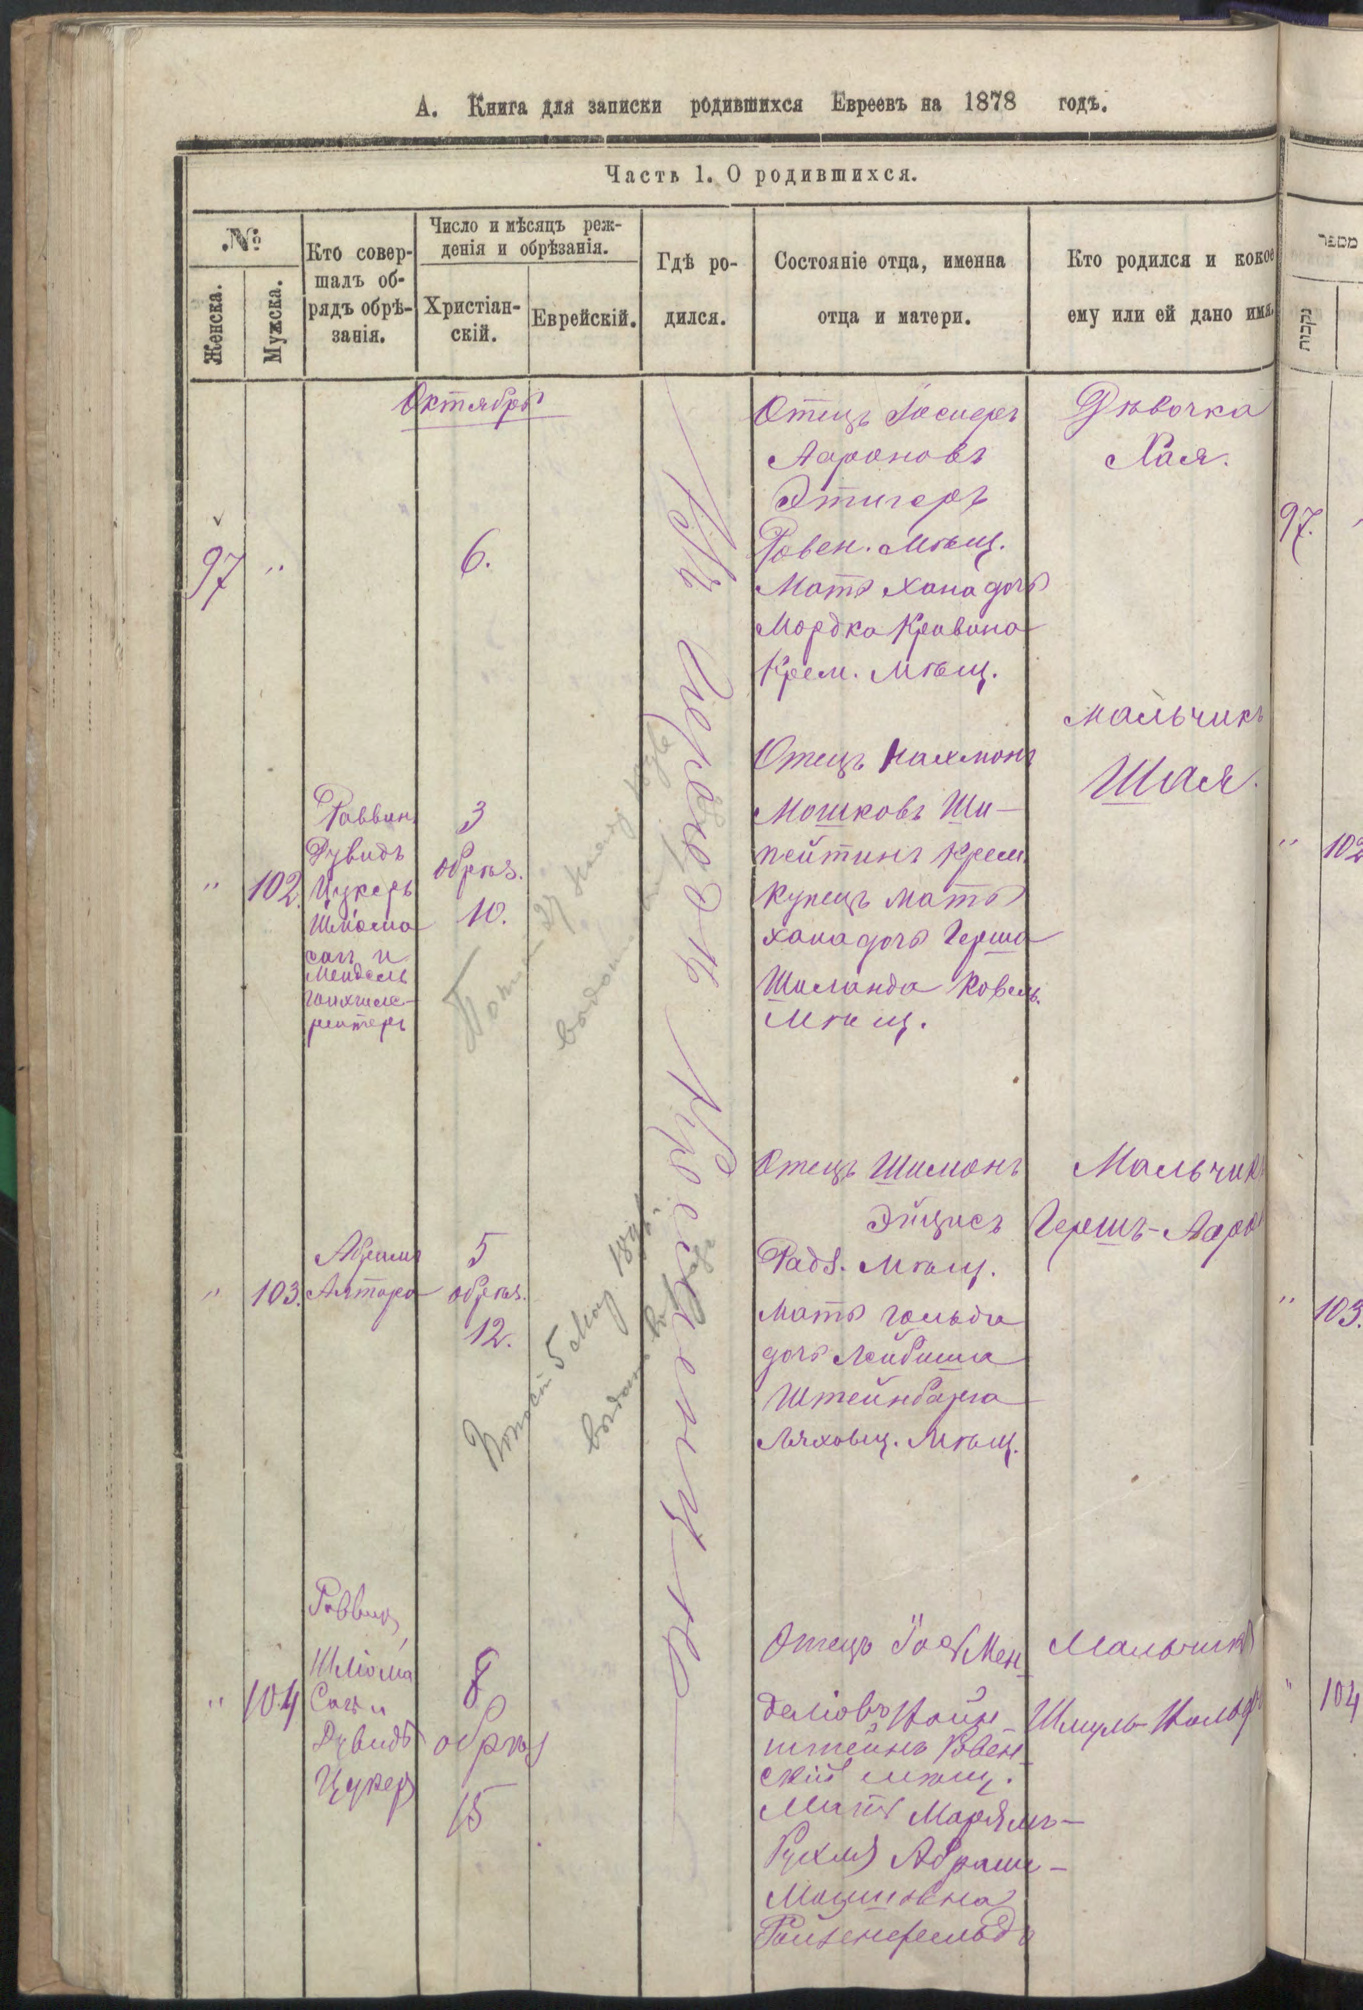 А. Книга для записки родившихся Евреевъ на 1878 годъ.
Часть 1. О родившихся.
№
Женска.
Мужска.
Кто совер-
шалъ об-
рядъ обрѣ-
занія.
Число и мѣсяцъ реж-
денія и обрѣзанія.
Христіан-
скій.
Еврейскій.
Гдѣ ро-
дился.
Состояніе отца, именна
отца и матери.
Кто родился и кокое
ему или ей дано имя.
מספר
נקבות
Октябрь
Въ Городѣ Кременцѣ
97 "
6.
Отецъ Іосифъ
Аароновъ
Этигеръ
Ровен. Мѣщ.
Мать Хана дочь
Мордка
Крем. Мѣщ.
Дѣвочка
Хая.
97.
" 102.
Раввин.
Дувидъ
Цукеръ
Шліома
сач и
Мендель
3
обрѣз.
10.
Отецъ Нахманъ
Мошковъ Ши-
пейтинъ Крем.
Купецъ Мать
Хана дочь Герша
Шиланда Ковель.
Мѣщ.
Мальчикъ
Шая.
" 102
" 103.
Абрамъ
5
обрѣз.
12.
Отецъ Шимонъ
Эйцисъ
Радз. Мѣщ.
Мать Гольда
дочь Лейбиша
Штейнбарга
Ляховц. Мѣщ.
Мальчикъ
Гершъ-Аарон
" 103.
" 104
Раввин,
Шліома
Сач и
Дувидъ
Цукеръ
8
обрѣз
15
Отецъ Іос Мен-
деліовъ Вайн-
штейнъ Ровен-
скій мѣщ.
Мать Марьямъ-
Рухля Абрам-
Мошковна
Райзенфельдъ
Мальчикъ
Шмуль-Вольф
" 104